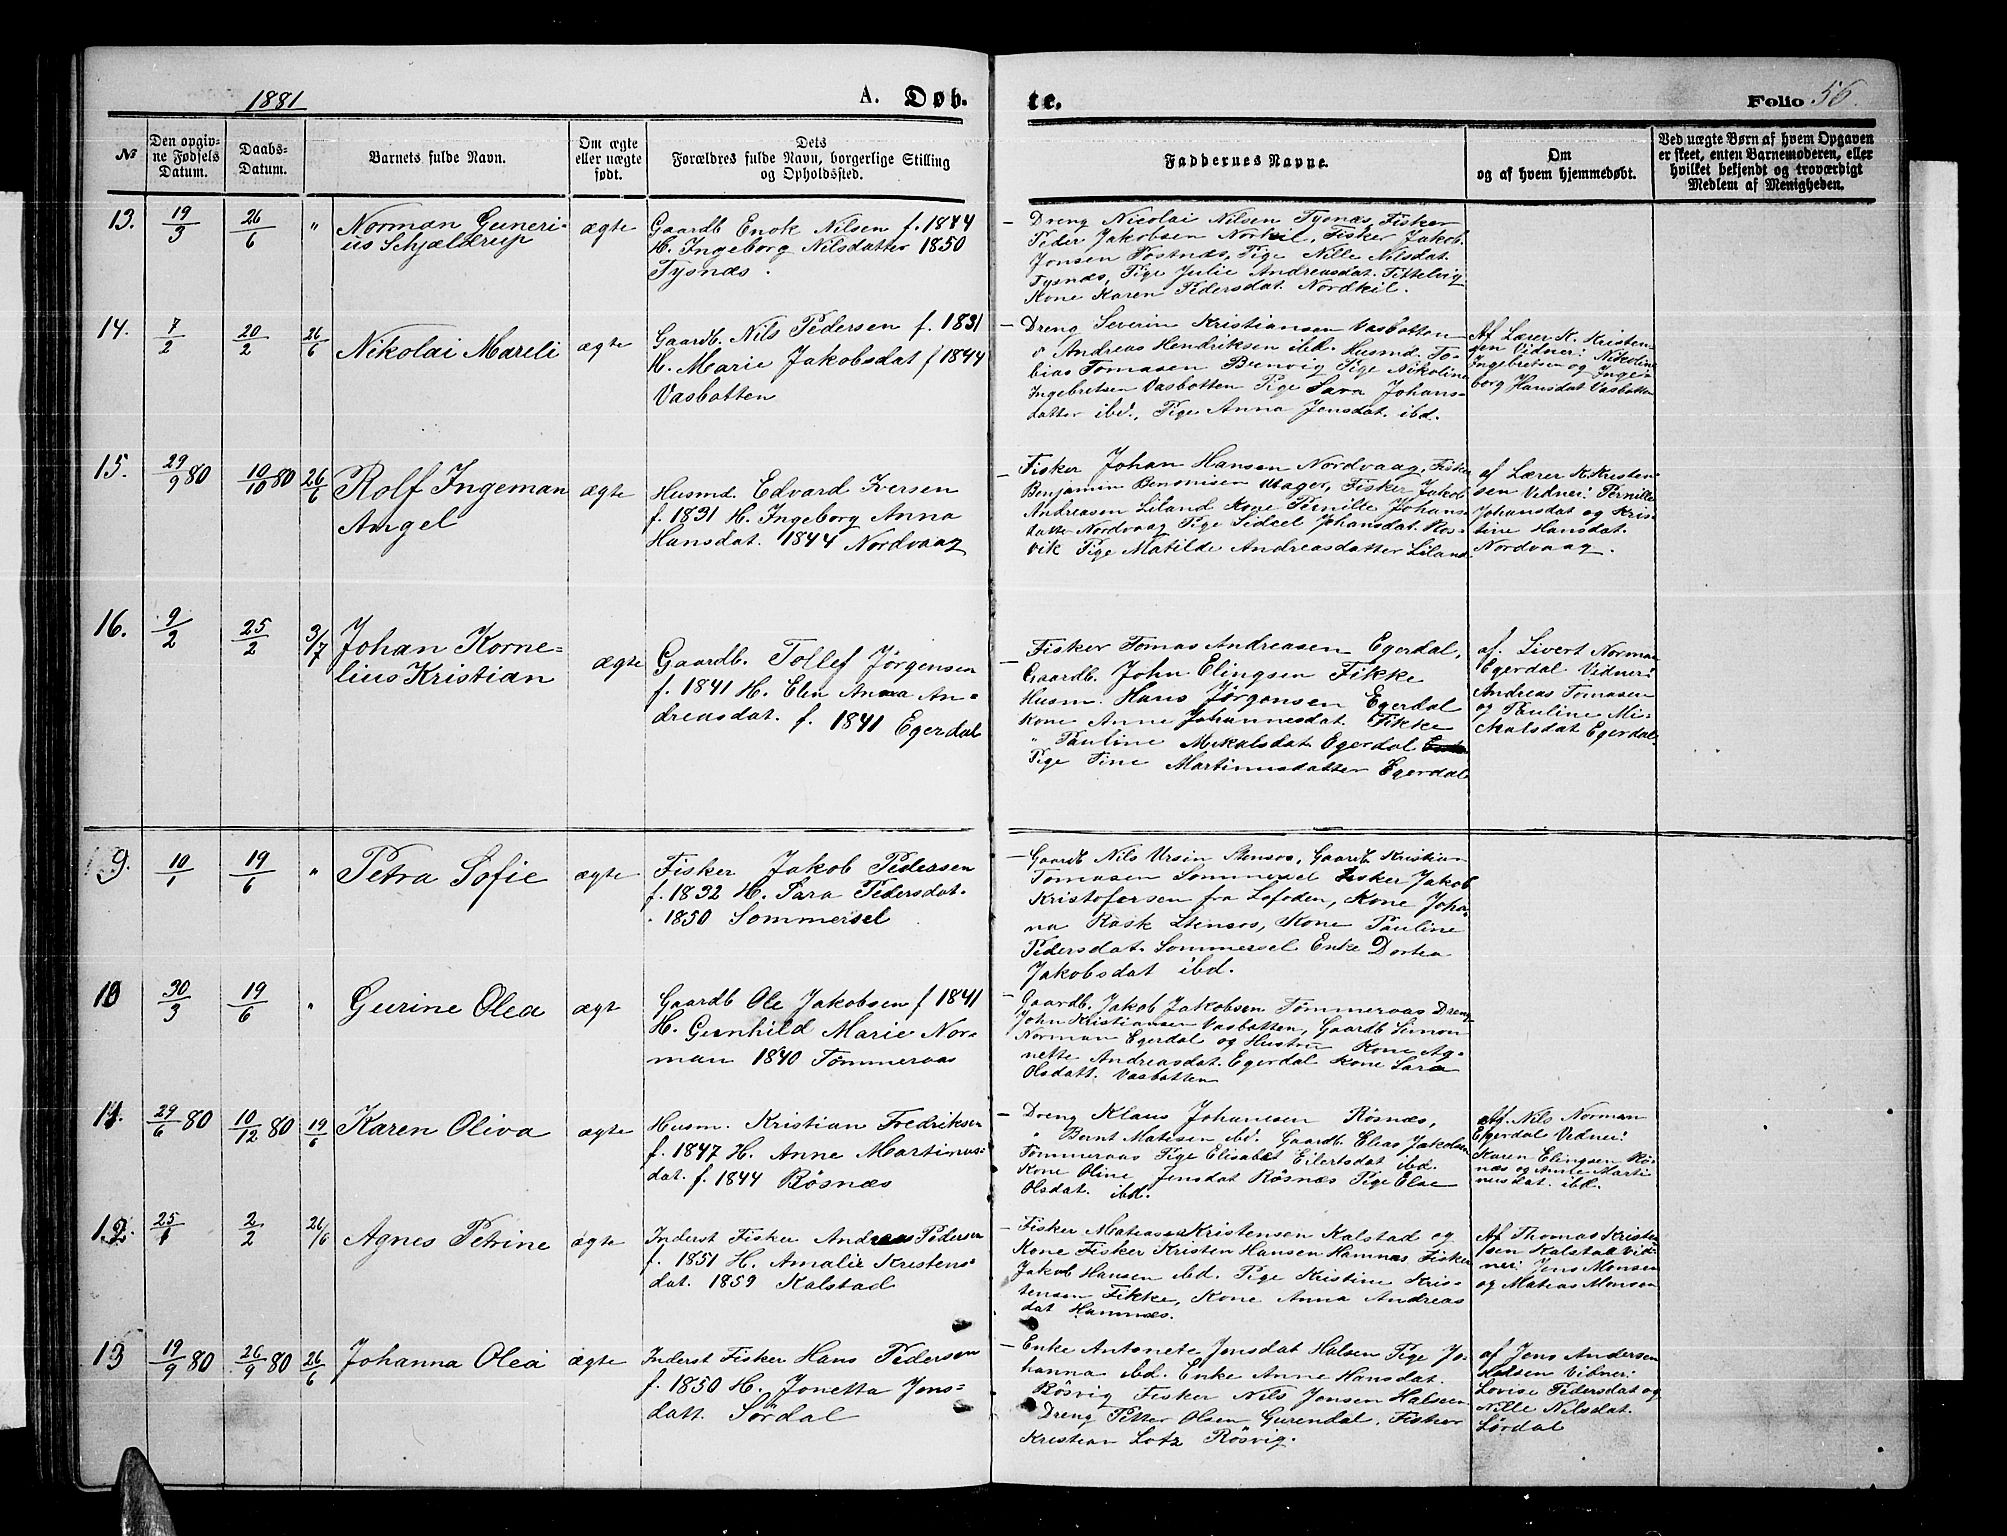 1881
A. Døb.
te.
Folio 56.
№
Den opgiv-
ne Fødsels
Datum.
Daabs-
Datum.
Barnets fulde Navn.
Om ægte
eller uægte
født.
Dets
Forældres fulde Navn, borgerlige Stilling
og Opholdssted.
Faddernes Navne.
Om
og af hvem hjemmedøbt.
Ved uægte Børn af hvem Opgaven
er skeet, enten Barnemoderen, eller
hvilket bekjendt og troværdigt
Medlem af Menigheden.
13. 19/3 26/6 "
Norman Guneri-
us Schjælderup
ægte
Gaardb Enok Nilsen f. 1844
H. Ingeborg Nilsdatter 1850
Tysnæs.
– Dreng Nicolai Nilsen Tysnæs, Fisker
Peder Jakobsen Norkil, Fisker Jakob
Jonsen Postnæs, Pige Nille Nilsdat
Tysnæs, Pige Julie Andreasdat. Fittelvig
Kone Karen Pedersdat. Nordkil.
14. 7/2 20/2 26/6
Nikolai Mareli
ægte
Gaardb. Nils Pedersen f. 1831
H. Marie Jakobsdat f 1844
Vasbotten
– Dreng Severin Kristiansen Vasbotten
o Andreas Hendriksen ibd. Husmd. To-
bias Tomasen Benvig Pige Nikoline
Ingebretsen Vasbotten Pige Sara Johans-
datter ibd., Pige Anna Jensdat. ibd.
Af Lærer K. Kristen-
sen Vidner: Nikoline
Ingebretsen og Inge-
borg Hansdat Vasbotten
15. 29/9 80 10/10 80 26/6
Rolf Ingeman
Angel
ægte
Husmd. Edvard Iversen
f. 1831 H. Ingeborg Anna
Hansdat. 1844 Nordvaag
– Fisker Johan Hansen Nordvaag, Fisker
Benjamin Bensnisen Mager, Fisker Jakob
Andreasen Liland Kone Pernille Johans-
datter Nordvaag Pige Sidsel Johansdat. Ros-
vik Pige Matilde Andreasdatter Liland
af Lærer K. Kristen-
sen Vidner: Pernille
Johansdat og Kris-
tine Hansdat.
Nordvaag.
16. 9/2 25/2 3/7
Johan Korne-
lius Kristian
ægte
Gaardb. Tollef Jørgensen
f. 1841 H. Elen Anna An-
dreasdat. f. 1841 Egerdal
Fisker Tomas Andreasen Egerdal,
– Gaardb. John Elingsen Fikke
Husm. Hans Jørgensen Egerdal
Kone Anne Johannesdat. Fikke
" Pauline Mikalsdat Egerdal
Pige Tine Martinusdatter Egerdal
af. Sivert Norman
Egerdal Vidner:
Andreas Tomasen
og Pauline Mi-
kalsdat Egerdal.
9. 10/1 19/6 "
Petra Sofie
ægte
Fisker Jakob Pedersen
f. 1832 H. Sara Pedersdat.
. 1850 Sommersel
– Gaardb Nils Ursin Stensos, Gaardb Kristian
Tomasen Sommersel Fisker Jakob
Kristofersen fra Lofoden, Kone Joha-
na Rask Stensos, Kone Pauline
Pedersdat. Sommersel Enke Dortea
Jakobsdat ibd.
10 30/3 19/6 "
Gurine Olea
ægt
Gaardb Ole Jakobsen f 1841
H. Gunhild Marie Nor-
man 1840 Tømmeraas
– Gaardb. Jakob Jakobsen Tømmeraas Dreng
John Kristiansen Vasbotten, Gaardb Simon
Norman Egerdal og Hustru Kone Ag-
nette Andreasdat. Egerdal Kone Sara
Olsdatt. Vasbotten
11. 29/6 80 10/12 80 19/6
Karen Oliva
ægte
Husm. Kristian Fredriksen
f. 1847 H. Anne Martinus-
dat. f. 1844 Røsnæs
– Dreng Klaus Johansen Røsnæs,
" Bernt Matisen ibd. Gaardb. Elias Jakobsen
Tømmeraas Pige Elisabet Eilertsdat ibd.
Kone Oline Jensdat Røsnæs Pige Else
Olsdat. ibd.
af. Nils Norman
Egerdal Vidner:
Karen Elingsen Rø-
næs og Anne Marti
nusdat. ibd.
12. 25/1 2/2 26/6
Agnes Petrine
ægte
Inderst Fisker Andreas Pedersen
f. 1851 H. Amalie Kristens-
dat. 1859 Kalstad
– Fisker Matias Kristensen Kalstad og
Kone Fisker Kristen Hansen Hamnæs Fisker
Jakob Hansen ibd. Pige Kristine Kris-
tensen Fikke, Kone Anna Andreas
dat Hamnæs.
Af Thomas Kristen
sen Kalstad Vid-
ner: Jens Monsen
og Matias Monsen
13 19/9 80 26/9 80 26/6
Johanna Olea
ægte
Inderst Fisker Hans Pedersen
f. 1850 H. Jonetta Jens-
datt. Sørdal
– Enke Antonete Jensdat Halsen Pige Jo-
hanna ibd. Enke Anne Hansdat.
Røsvig Fisker Nils Jensen Halseen
Dreng Petter Olsen Gurendal, Fisker
Kristian Lotz Røsvig.
af Jens Andersen
Halsen Vidner:
Lovise Pedersdat og
Nille Nilsdat.
Sørdal